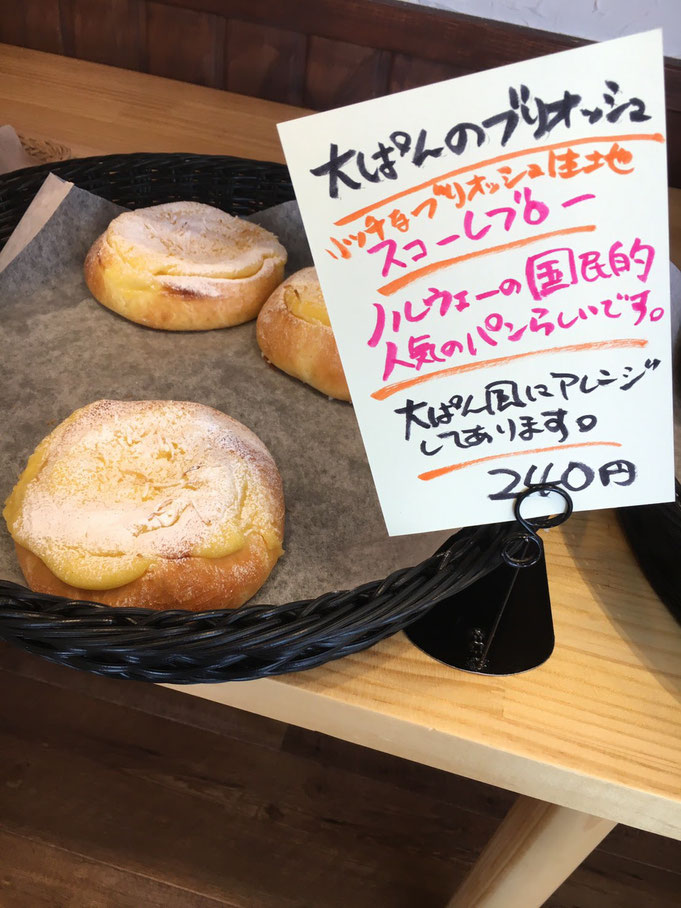 大ぱんのブリオッシュ
リッチなブリオッシュ生地
スコーレブロー
ノルウェーの国民的
人気のパンらしいです。
大ぱん風にアレンジ
してあります。
240円